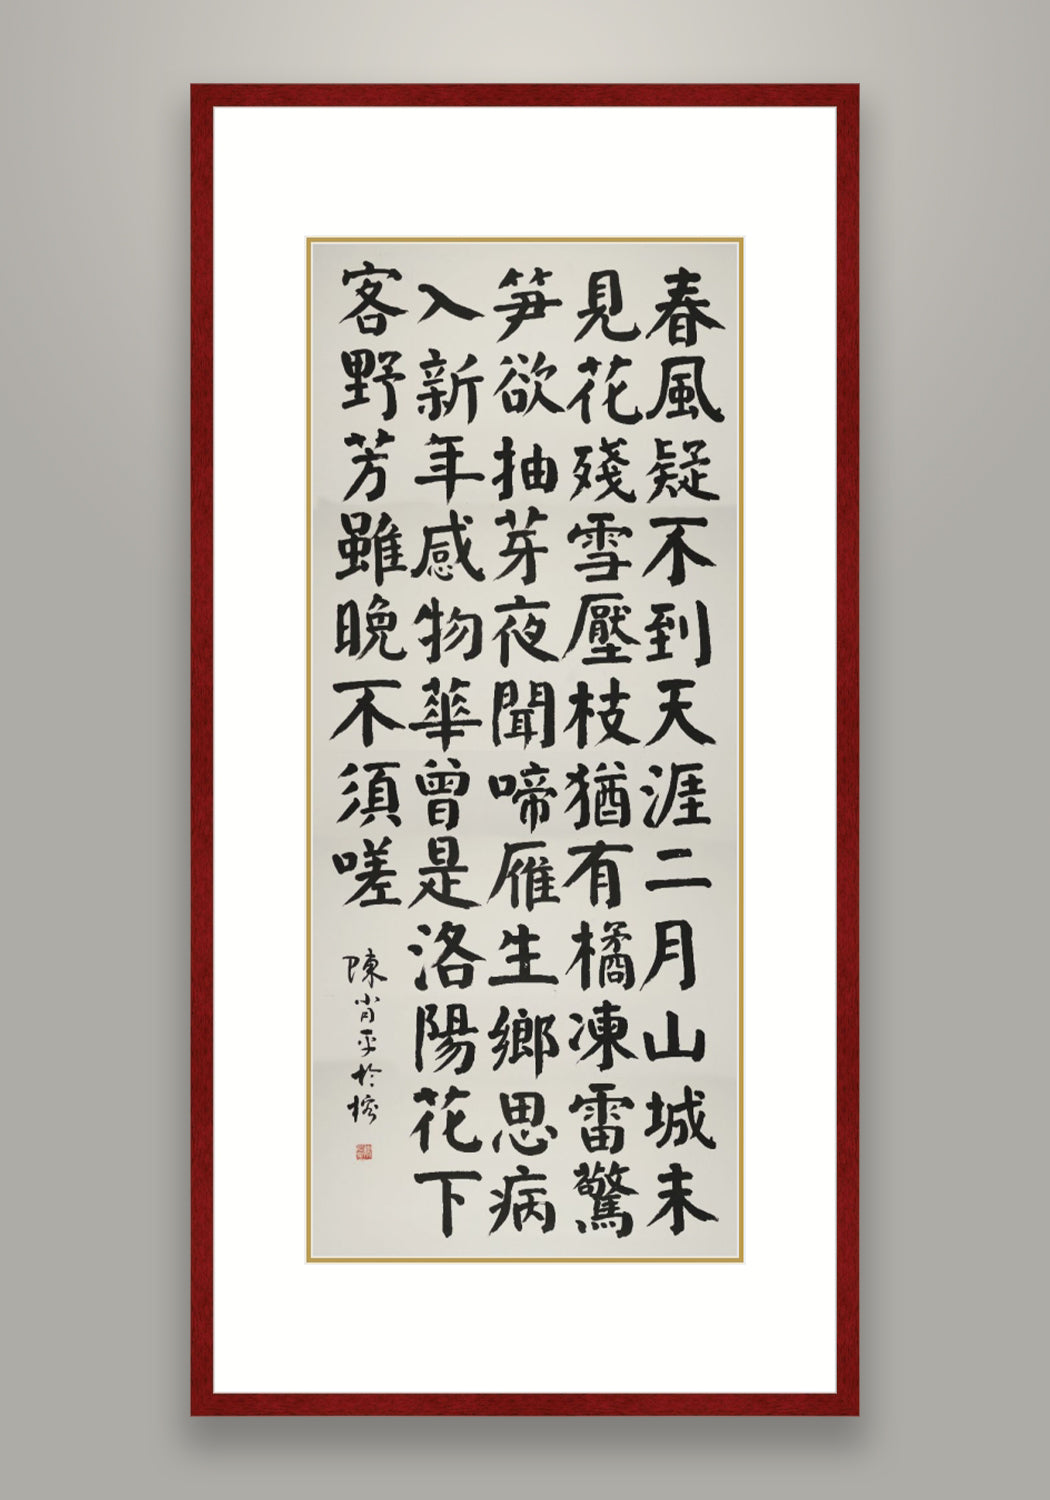 春風疑不到天涯二月山城未
見花殘雪壓枝猶有橘凍雷驚
笋欲抽芽夜聞啼雁生鄉思病
入新年感物華曾是洛陽花下
客野芳雖晚不須嗟
陳肖平於榕